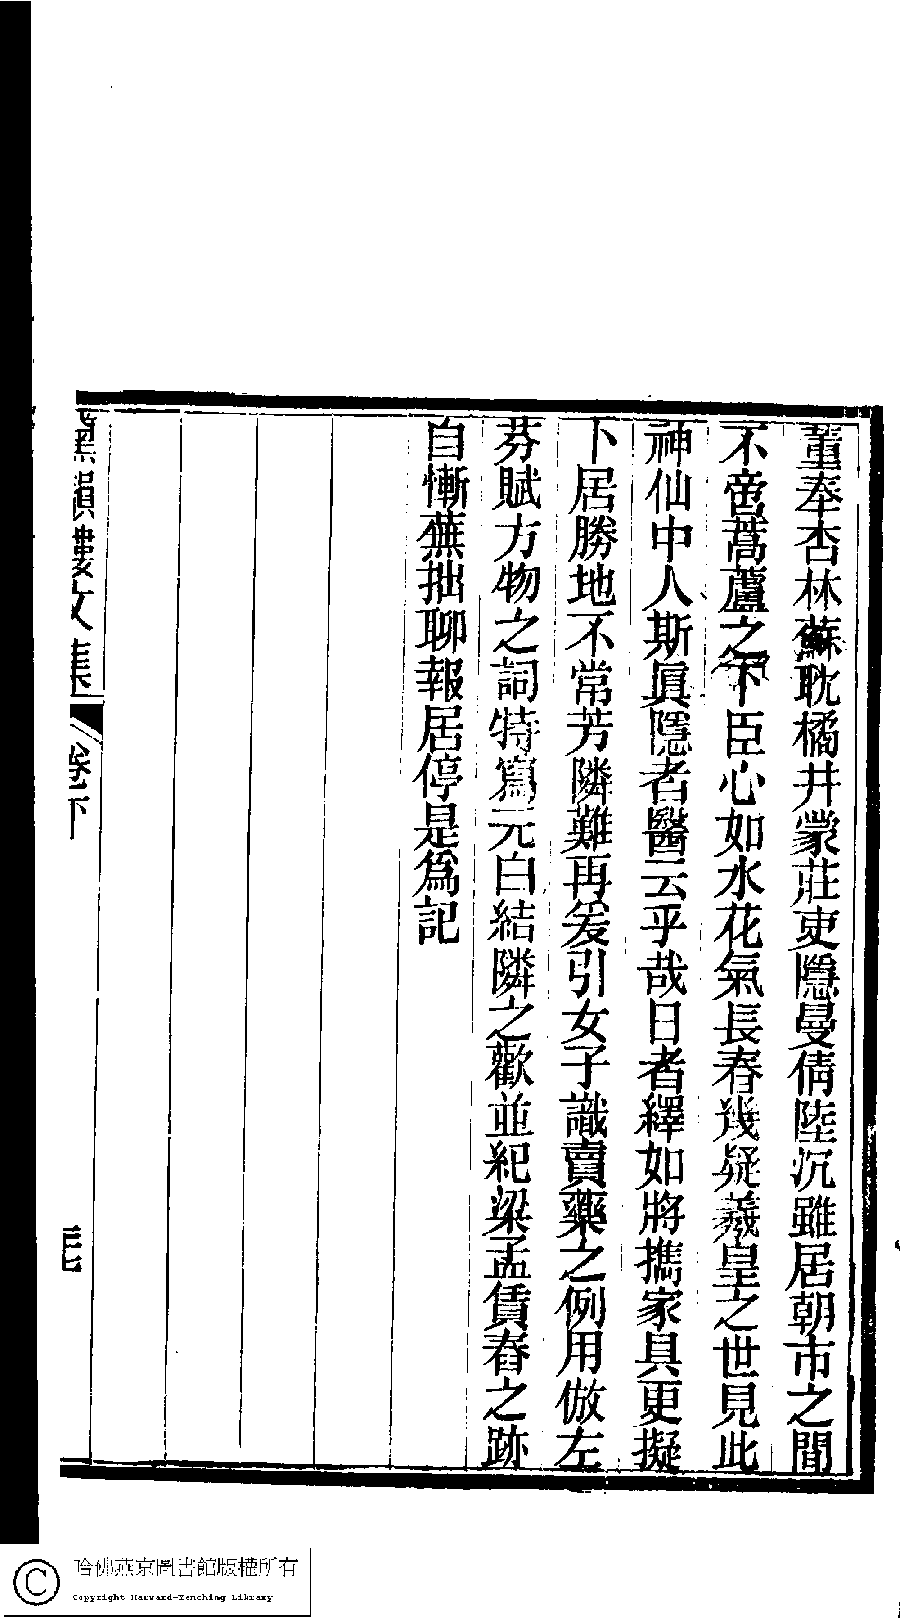 董奉杏林蘇耽橘井蒙莊吏隱曼倩陸沉雖居朝市之間
不啻蒿蘆之下臣心如水花氣長春幾疑羲皇之世見此
神仙中人斯眞隱者醫云乎哉日者繹如將攜家具更擬
卜居勝地不常芳隣難再爰引女子識賣藥之例用倣左
芬賦方物之詞特寫元白結隣之歡並紀梁孟賃舂之跡
自慚蕪拙聊報居停是爲記
韻樓文集
卷下
哈佛燕京圖書館版權所有
Copyright Harvard-Yenching Library